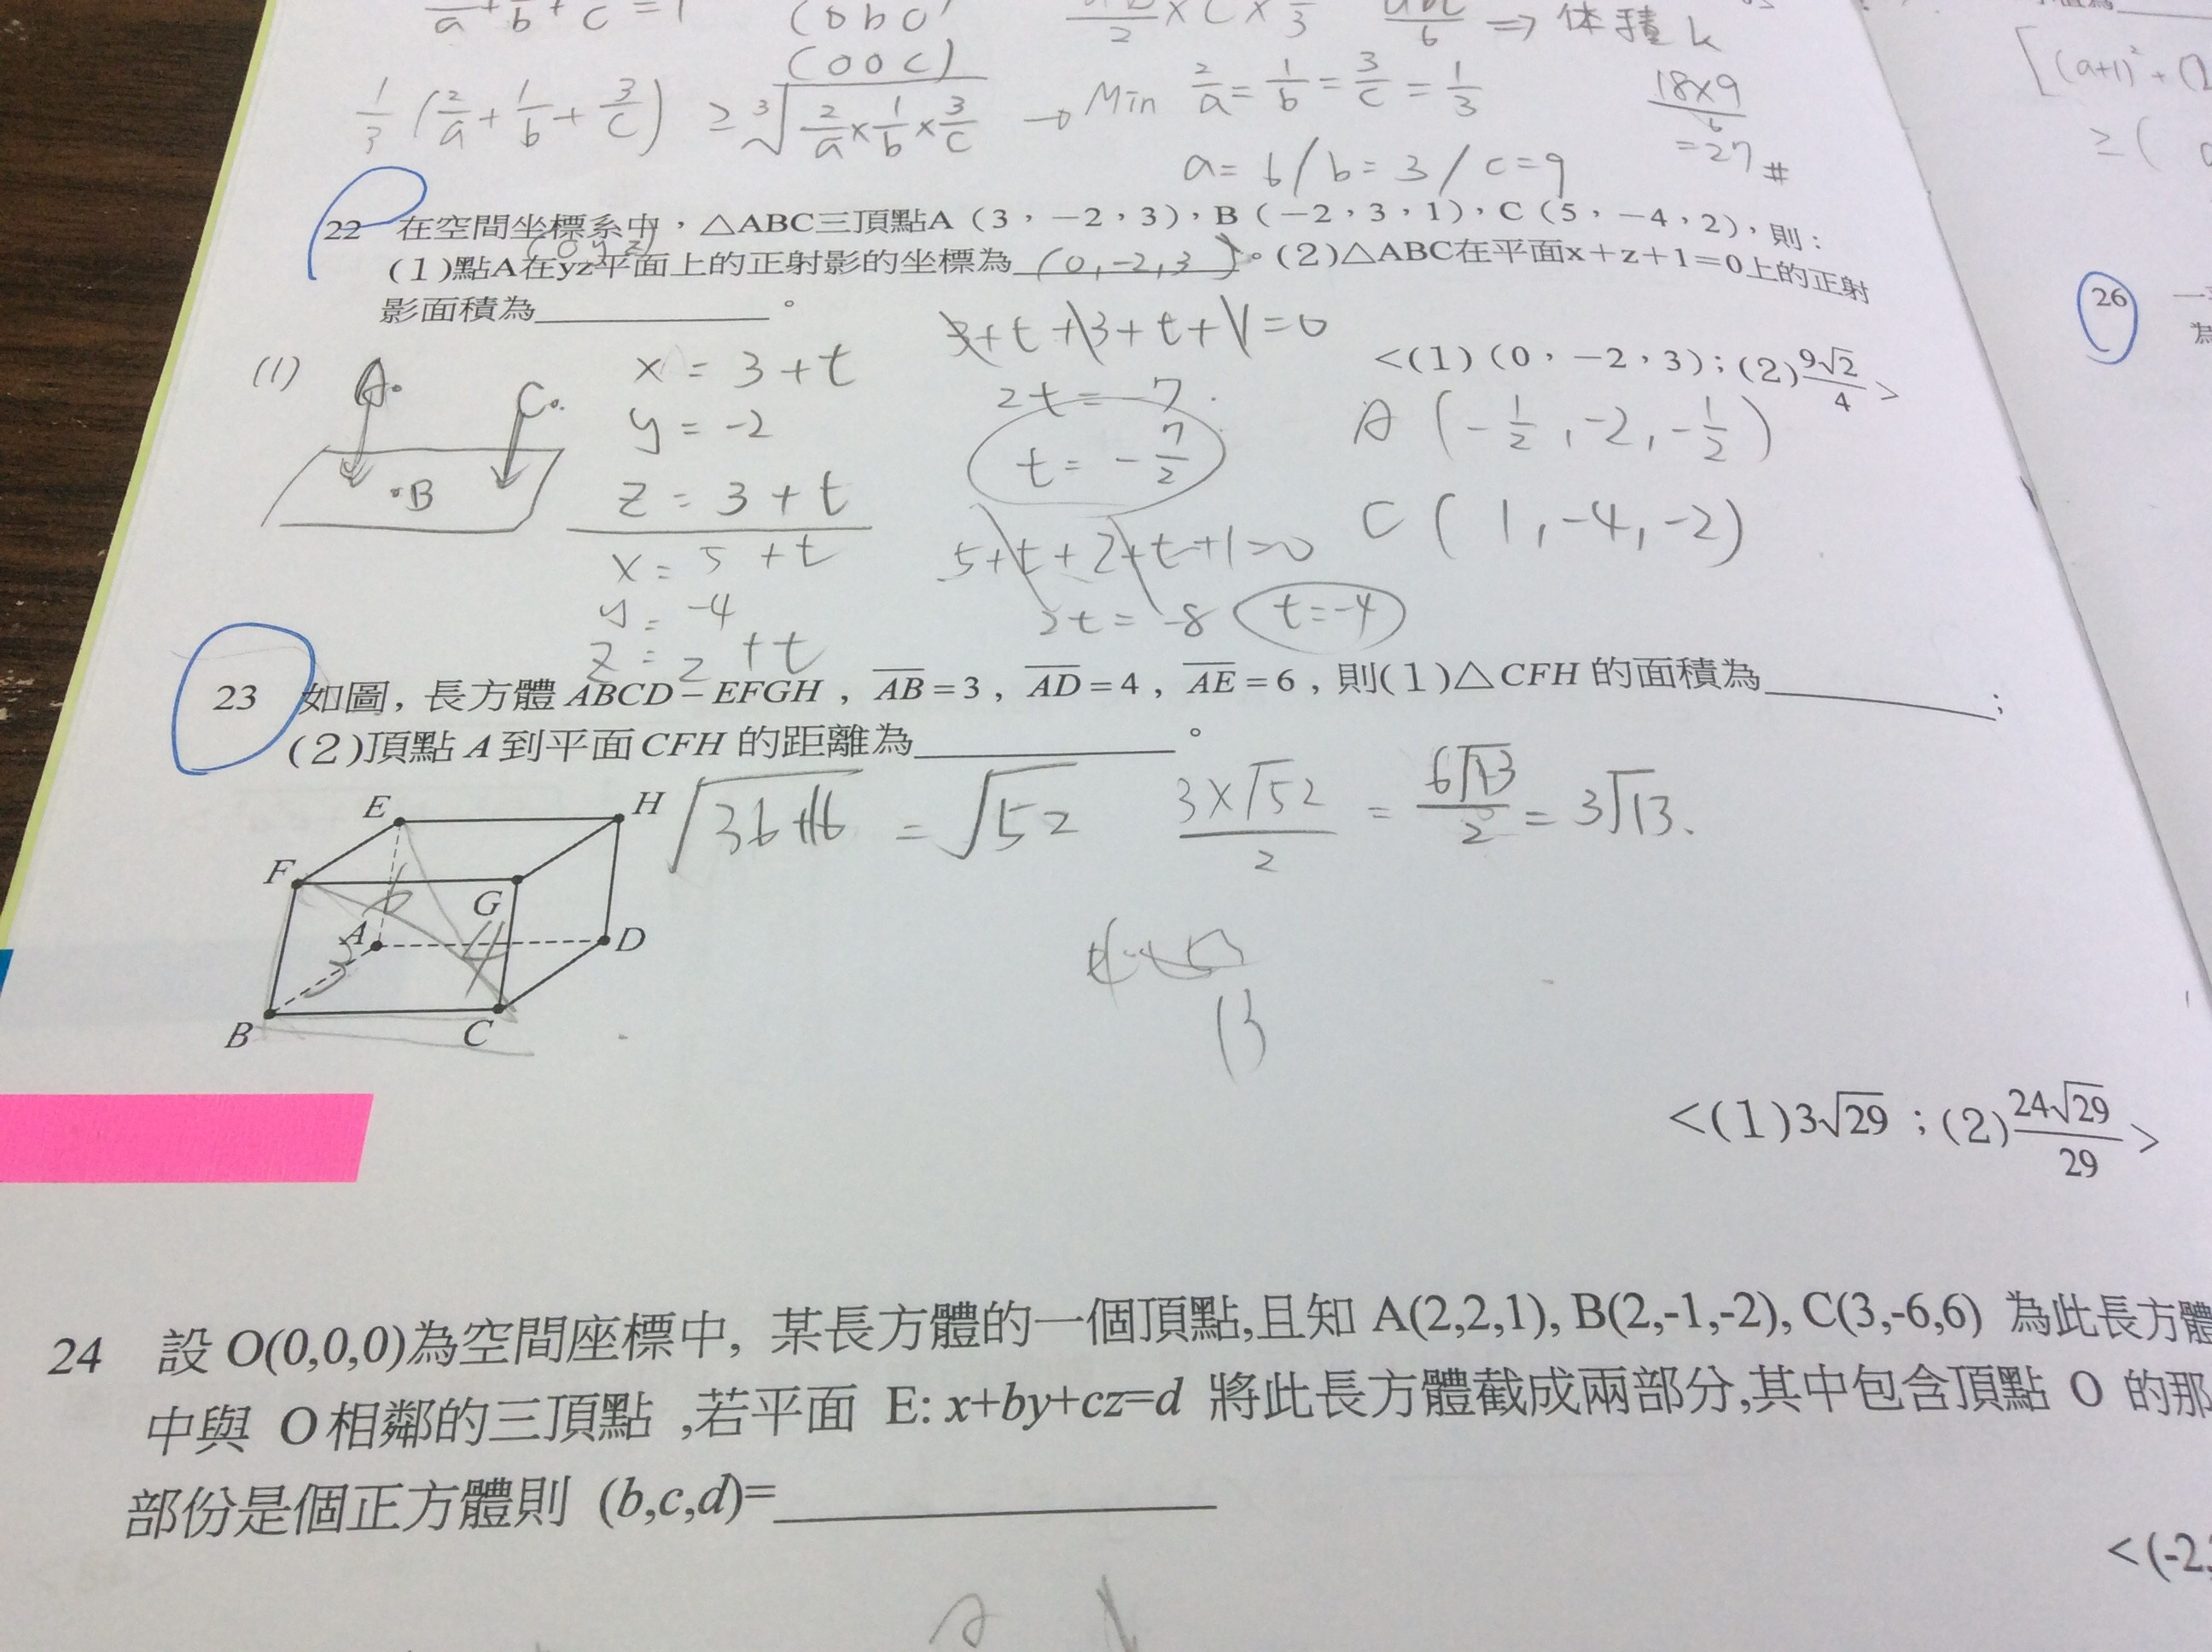 (0 b 0)
(0 0 c)
⇒ 体積 k
1/3 (2/a + 1/b + 3/c) ≥ ∛(2/a × 1/b × 3/c) → Min 2/a = 1/b = 3/c = 1/3
18×9/6
=27 #
a= 6 / b= 3 / c=9
22 在空間坐標系中，△ABC三頂點A（3，－2，3），B（－2，3，1），C（5，－4，2），則：
(0 y z)
(1)點A在yz平面上的正射影的坐標為 (0,-2,3) 。(2)△ABC在平面x＋z＋1＝0上的正射
影面積為＿＿＿＿＿＿。
<(1)（0，－2，3）；(2) 9√2/4 >
(1) A. C. ·B
x = 3+t
y = -2
z = 3+t
3+t+3+t+1=0
2t = -7
t = -7/2
A (-1/2, -2, -1/2)
x = 5 +t
y = -4
z = 2 +t
5+t+2+t+1=0
2t = -8 t=-4
C (1, -4, -2)
23 如圖, 長方體 ABCD－EFGH , AB=3 , AD=4 , AE=6 , 則(1)△CFH 的面積為＿＿＿＿＿＿;
(2)頂點 A 到平面CFH 的距離為＿＿＿＿＿＿。
√36+16 = √52 3×√52/2 = 6√13/2 = 3√13.
E H
F G
6
A D
3 4
B C
13
<(1)3√29 ; (2) 24√29/29 >
24 設 O(0,0,0)為空間座標中, 某長方體的一個頂點,且知 A(2,2,1), B(2,-1,-2), C(3,-6,6) 為此長方體
中與 O相鄰的三頂點 ,若平面 E: x+by+cz=d 將此長方體截成兩部分,其中包含頂點 O 的那
部份是個正方體則 (b,c,d)=＿＿＿＿＿＿
<(-2,
[(a+1)² + (
≥ (
26